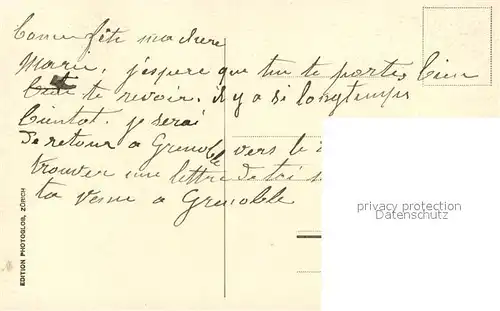 Bonne fête ma chère
Marie, j'espere que tu te portes bien
te revoir. il y a si longtemps
bientot. je serai
de retour a Grenoble vers le
trouver une lettre de toi
ta venue a Grenoble
EDITION PHOTOGLOB, ZÜRICH
privacy protection
Datenschutz